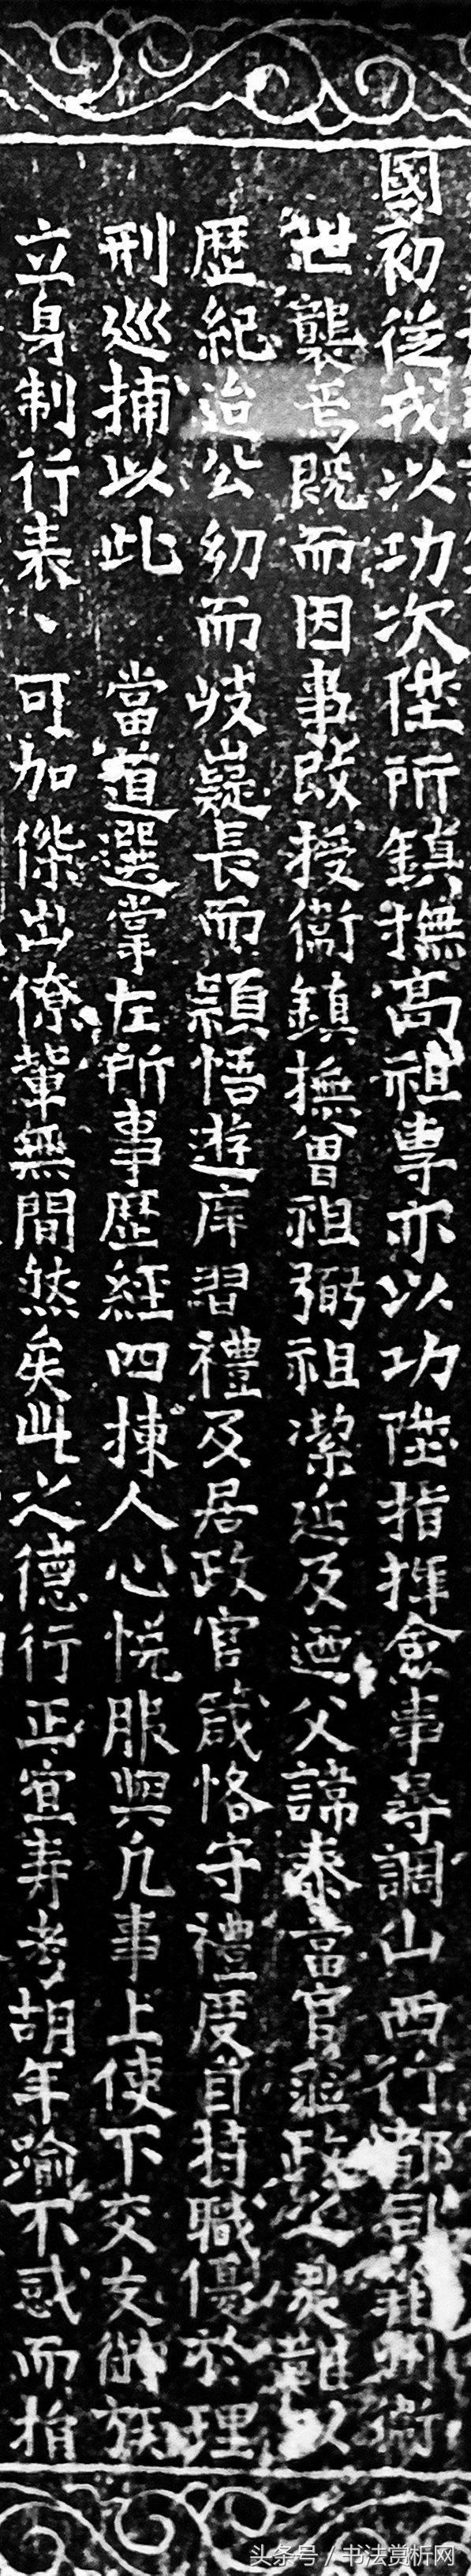 國初從戎以功次陞所鎮撫高祖專亦以功陞指揮僉事尋調山西行都司蔚州衛
世襲焉既而因事改授衛鎮撫曾祖弼祖潔延及迺父諱泰當官蒞政之最難以
歷紀迨公幼而岐嶷長而穎悟遊庠習禮及居政官箴恪守禮度自持職優於理
刑巡捕以此 當道選掌左所事歷經四揀人心悅服與凡事上使下交友御族
立身制行表、可加傑出僚輩無間然矣此之德行正宜壽考胡年踰不惑而捐
头条号/书法赏析网